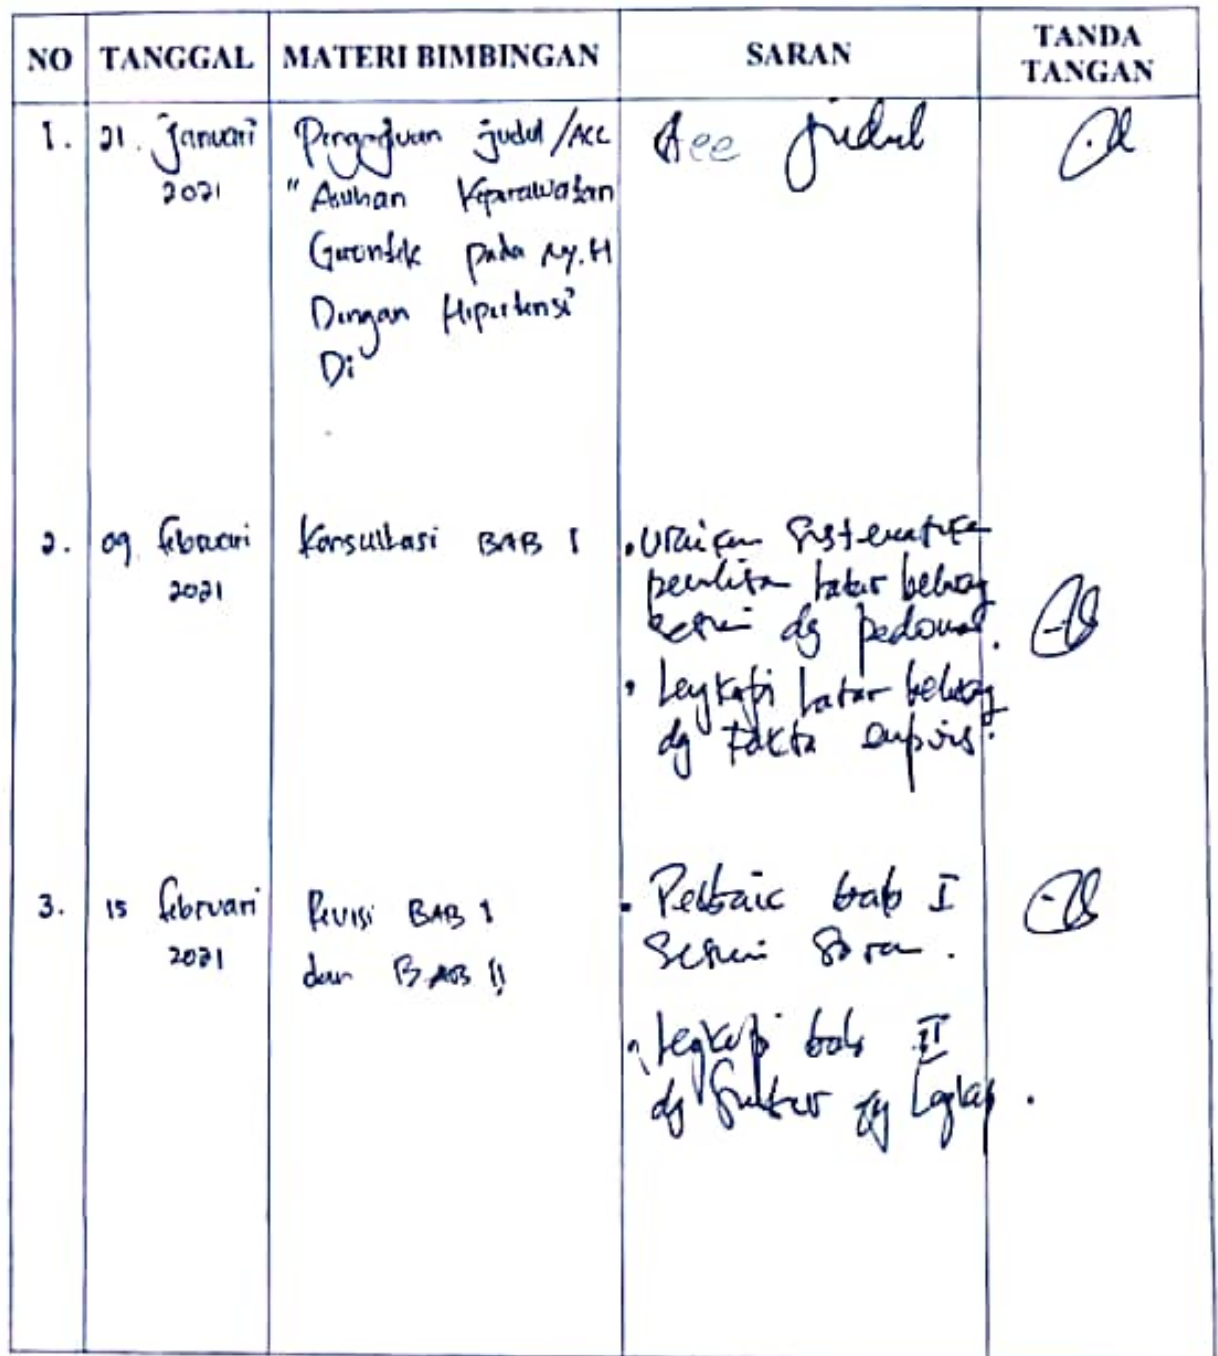 NO TANGGAL MATERI BIMBINGAN SARAN TANDA TANGAN
1. 21. Januari 2021
Pengajuan judul/ACC
"Asuhan Keperawatan
Gerontik pada Ny.H
Dengan Hipertensi"
Di
Acc judul
2. 09. februari 2021
Konsultasi BAB I
• uraikan sistematika
penulisan latar belakang
sesuai dg pedoman.
• Lengkapi latar belakang
dg fakta empiris.
3. 15 februari 2021
Revisi BAB I
dan BAB II
• Perbaiki bab I
sesuai saran.
• Lengkapi bab II
dg yg Lengkap.